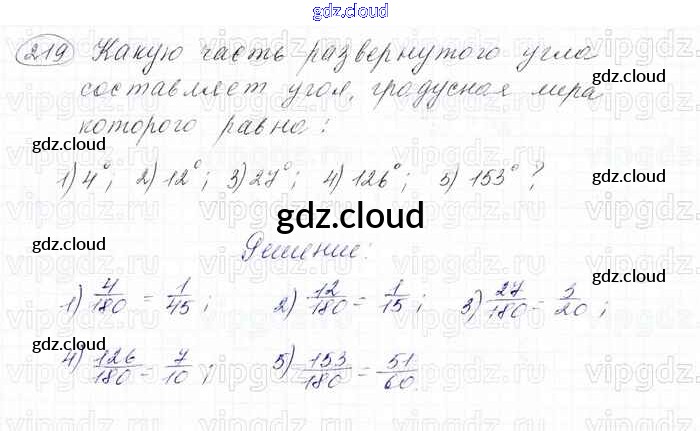 gdz.cloud
219 Какую часть развернутого угла
gdz.cloud
составляет угол, градусная мера
gdz.cloud
которого равна:
gdz.cloud
1) 4°; 2) 12°; 3) 27°; 4) 126°; 5) 153°?
gdz.cloud
gdz.cloud
gdz.cloud
Решение:
gdz.cloud
1) 4/180 = 1/45; 2) 12/180 = 1/15; 3) 27/180 = 3/20;
gdz.cloud
4) 126/180 = 7/10; 5) 153/180 = 51/60.
gdz.cloud
vipgdz.ru